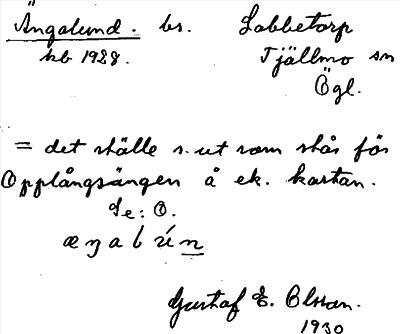 Ängalund. bs. Labbetorp
kb 1928. Tjällmo sn
Ögl.
= det ställe s. ut som står för
Opplångsängen å ek. kartan.
Se: O.
Gustaf E. Olsson.
1930